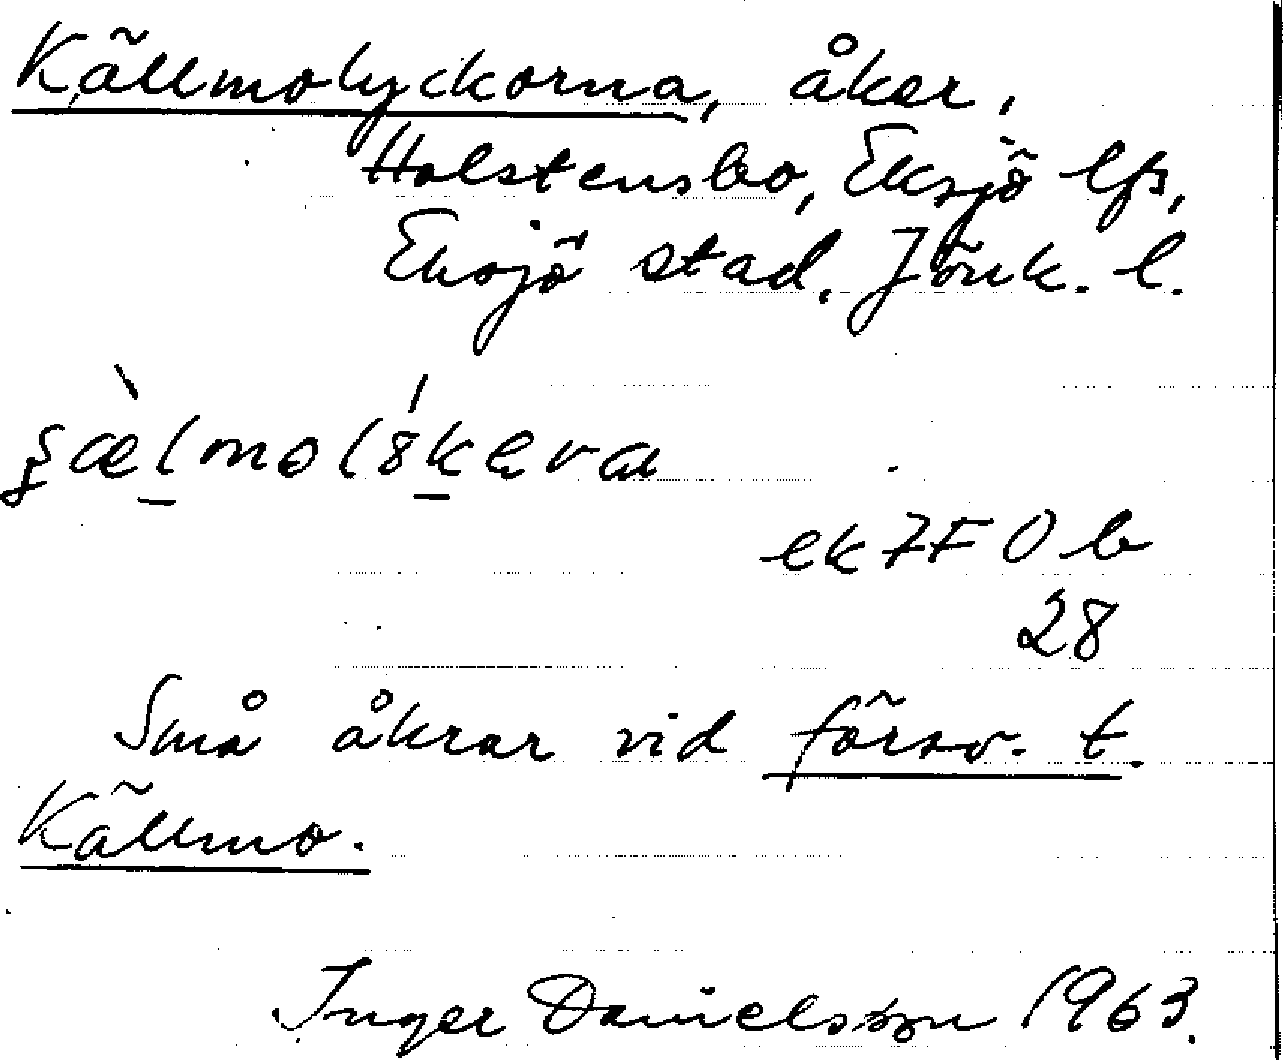 Källmolyckorna, åker,
Holstensbo, Eksjö lfs,
Eksjö stad, Jönk. l.
ek 7F 0 b
28
Små åkrar vid försv. t.
Källmo.
Inger Danielsson 1963.